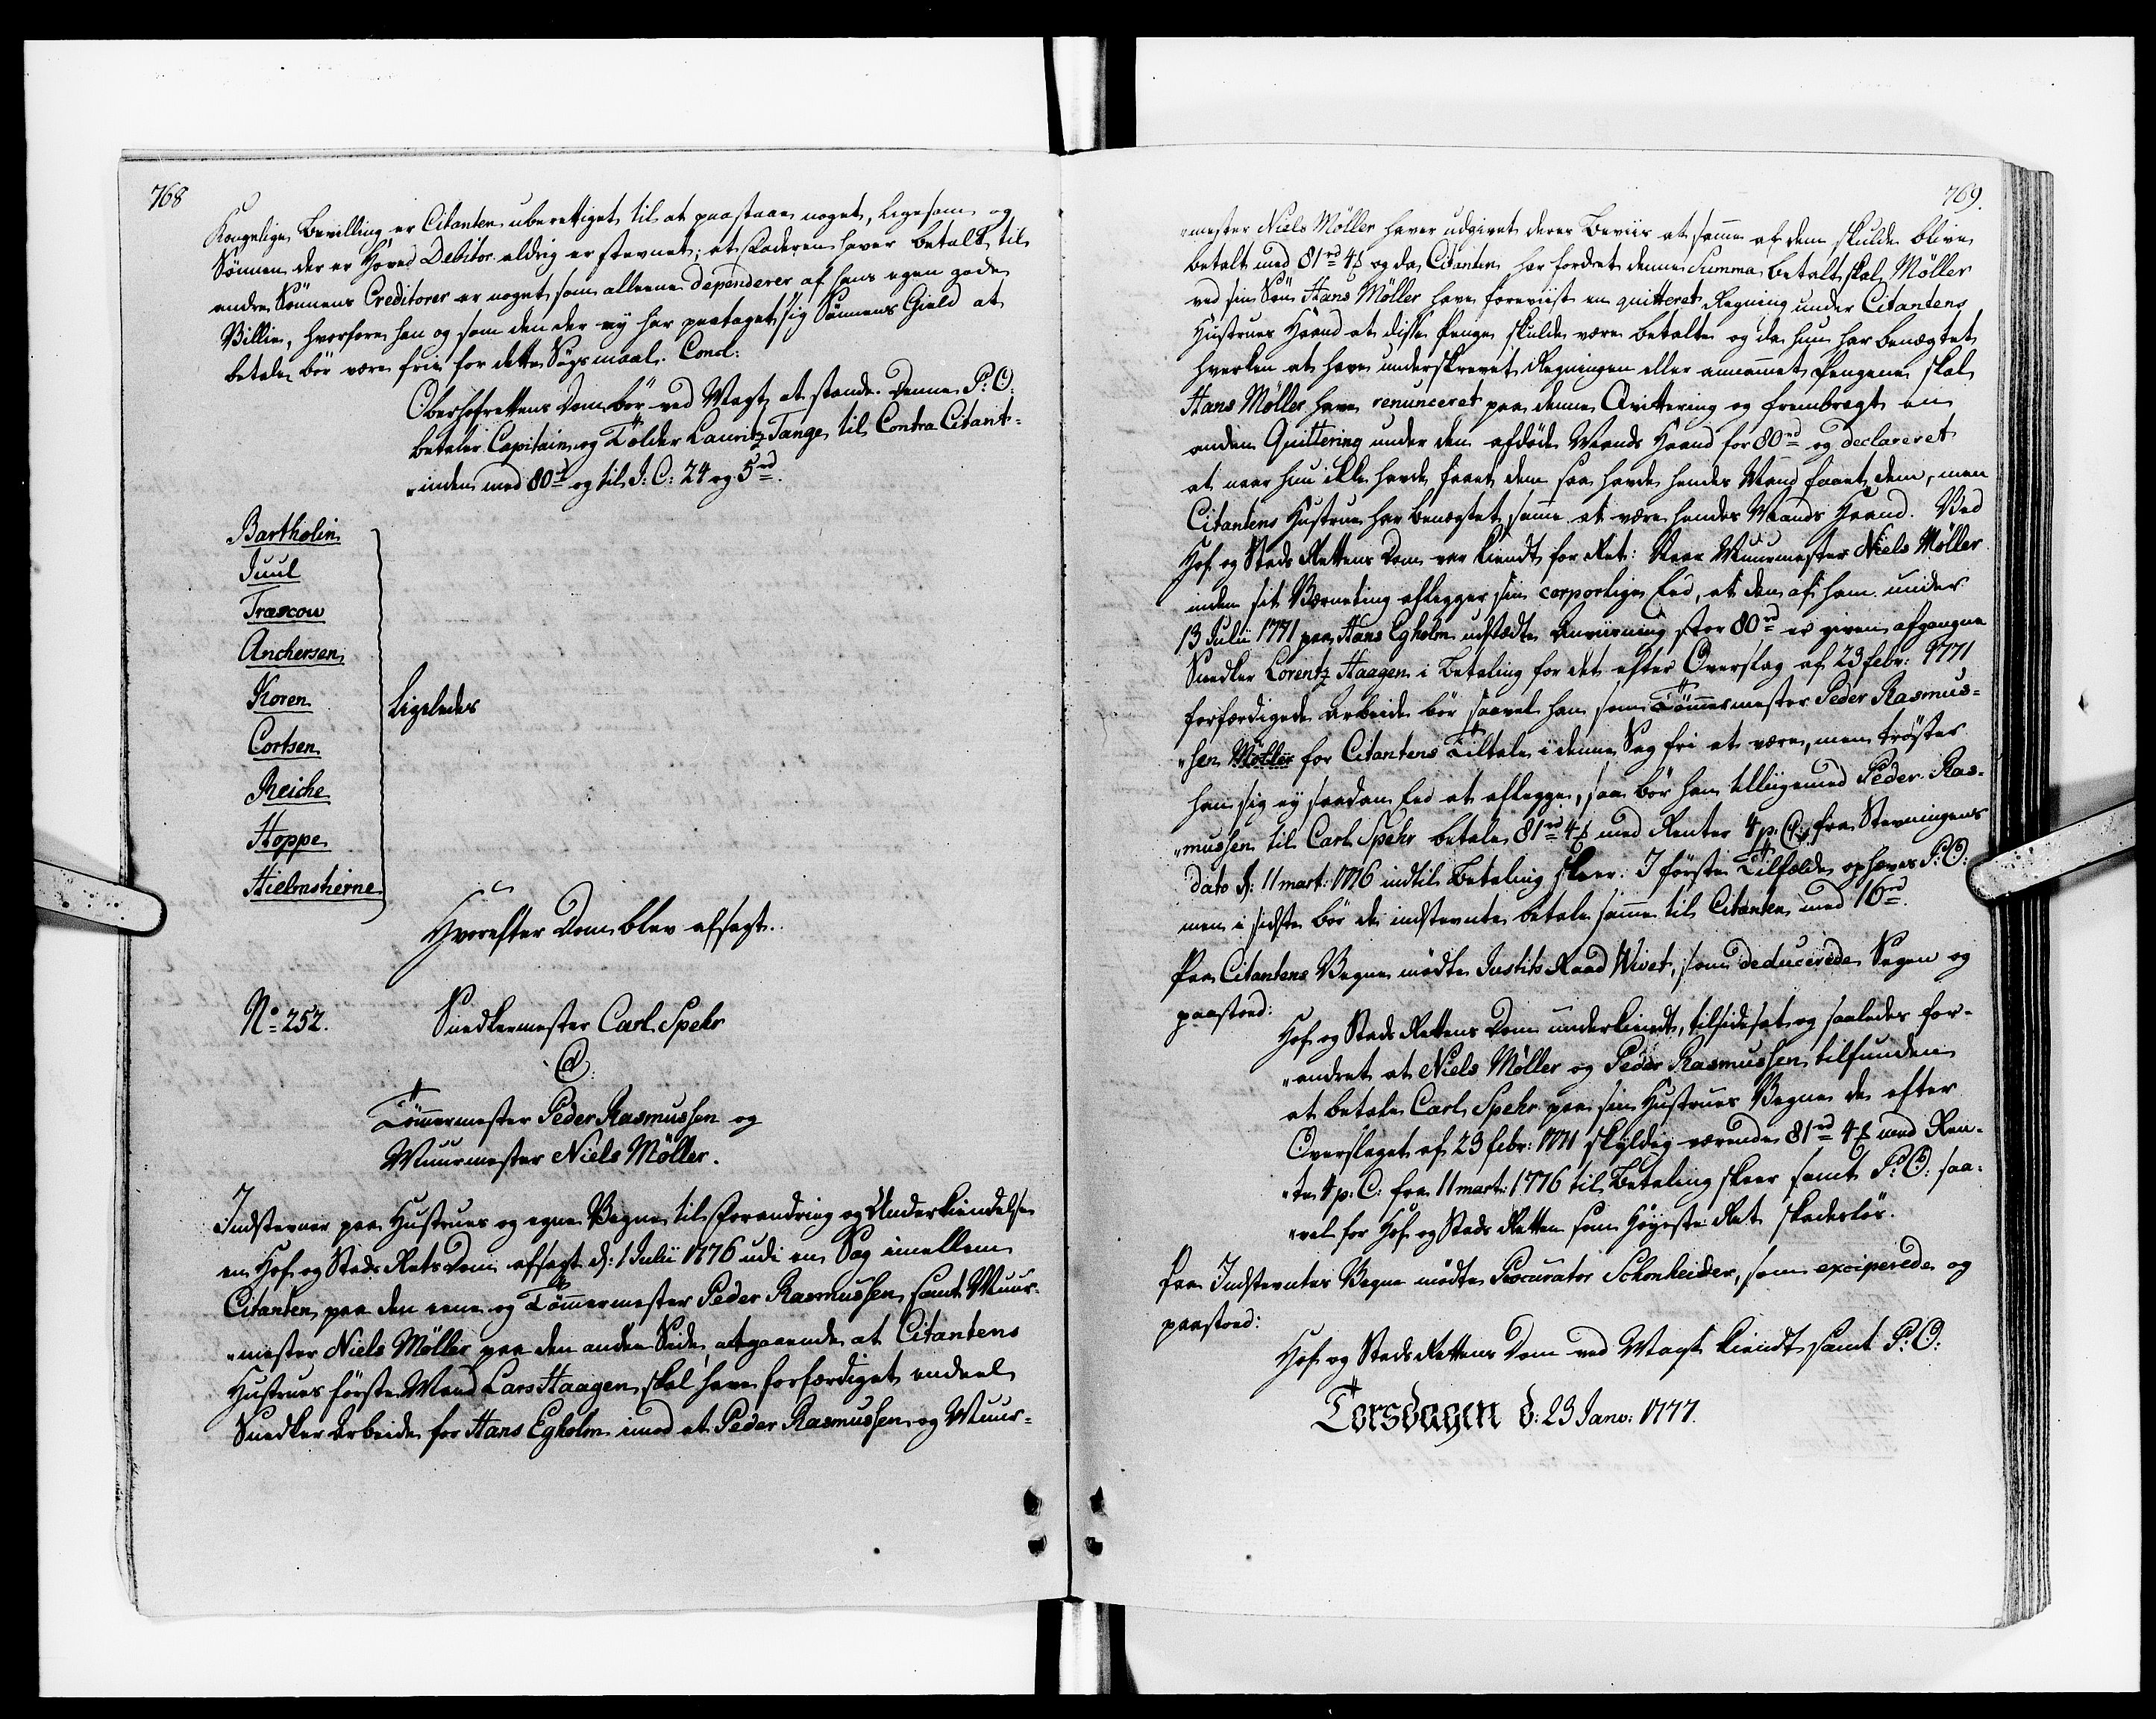 768
Kongelige Bevilling er Citanten uberettiget til at paastaae noget, ligesom og
Sönnen der er Hoved Debitor aldrig er stevnet, at Faderen haver betalt til
andre Sönnens Creditorer er noget som alleene dependerer af hans egen gode
Villie, hvorfore han og som den der ey har paataget sig Sönnens Gield at
betale bör være frie for dette Sögsmaal. Concl:
Oberhofrettens Dom bör ved Magt at stande. Denne P: O:
betaler Capitain og Tolder Lauritz Tange til Contra Citant-
inden med 80rd og til J: C: 24 og 5rd.
Bartholin
Juul
Træscow
Anchersen
Koren
Cortsen
Reiche
Hoppe
Hielmstierne
Ligeledes
Hvorefter Dom blev afsagt.
No 252.
Snedkermester Carl Spehr
@
Tömmermester Peder Rasmussen og
Muurmester Niels Möller.
Indstevner paa Hustrues og egne Vegne til Forandring og Underkiendelse
en Hof og Stads Rets Dom afsagt d: 1 Julii 1776 udi en Sag imellem
Citanten paa den eene og Tömmermester Peder Rasmussen samt Muur-
mester Niels Möller paa den anden Side angaaende at Citantens
Hustrues förste Mand Lars Haagen skal have forfærdiget endeel
Snedker Arbeide for Hans Egholm imod at Peder Rasmussen og Muur-
769.
mester Niels Möller haver udgivet deres Beviis at samme af dem skulde blive
betalt med 81rd 4ß og da Citanten har fordret denne Summa betalt skal Möller
ved sin Sön Hans Möller have foreviist en quitteret Regning under Citantens
Hustrues Haand at disse Penge skulde være betalte og da hun har benægtet
hverken at have underskrevet Regningen eller annammet Pengene skal
Hans Möller have renunceret paa denne Qvittering og frembragt en
anden Quittering under den afdöde Mands Haand for 80rd og declareret
at naar hun ikke havde faaet dem saa havde hendes Mand faaet dem, men
Citantens Hustrue har benægtet samme at være hendes Mands Haand. Ved
Hof og Stads Rettens Dom var kiendt for Ret: Naar Muurmester Niels Möller
inden sit Værneting aflegger sin corporlige Eed, at den af ham under
13 Julii 1771 paa Hans Egholm udstædte Anviisning stor 80rd er given afgangne
Snedker Lorentz Haagen i Betaling for det efter Overslag af 23 febr: 1771
forfærdigede Arbeide bör saavel han som Tömmermester Peder Rasmus-
sen Möller for Citantens Tiltale i denne Sag fri at være, men tröster
han sig ey saadan Eed at aflegge, saa bör han tilligemed Peder Ras-
mussen til Carl Spehr betale 81rd 4ß med Renter 4 p: C: fra Stevningens
dato d: 11 mart: 1776 indtil Betaling skeer. I förste Tilfælde ophæves P: O:
men i sidste bör de indstevnte betale samme til Citanten med 10rd.
Paa Citantens Vegne mödte Justits Raad Wivet, som deducerede Sagen og
paastoed:
Hof og Stads Rettens Dom underkiendt, tilsidesat og saaledes for-
andret at Niels Möller og Peder Rasmussen tilfunden
at betale Carl Spehr paa sin Hustrues Vegne de efter
Overslaget af 23 febr: 1771 skyldig værende 81rd 4ß med Ren-
te 4 p: C: fra 11 mart: 1776 til Betaling skeer samt P: O: saa-
vel for Hof og Stads Retten som Höyeste Ret skadeslös.
Paa Indstevntes Vegne mödte Procurator Schonheider, som exciperede og
paastoed:
Hof og Stads Rettens Dom ved Magt kiendt samt P: O:
Torsdagen d: 23 Janv: 1777.